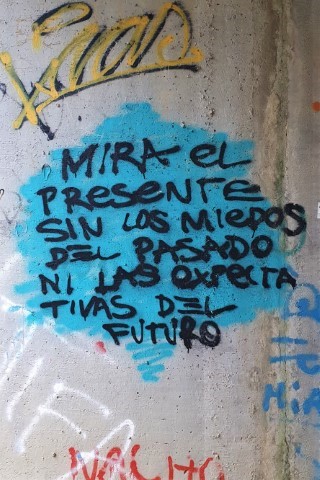 MIRA EL
PRESENTE
SIN LOS MIEDOS
DEL PASADO
NI LAS EXPECTA
TIVAS DEL
FUTURO
NACHO